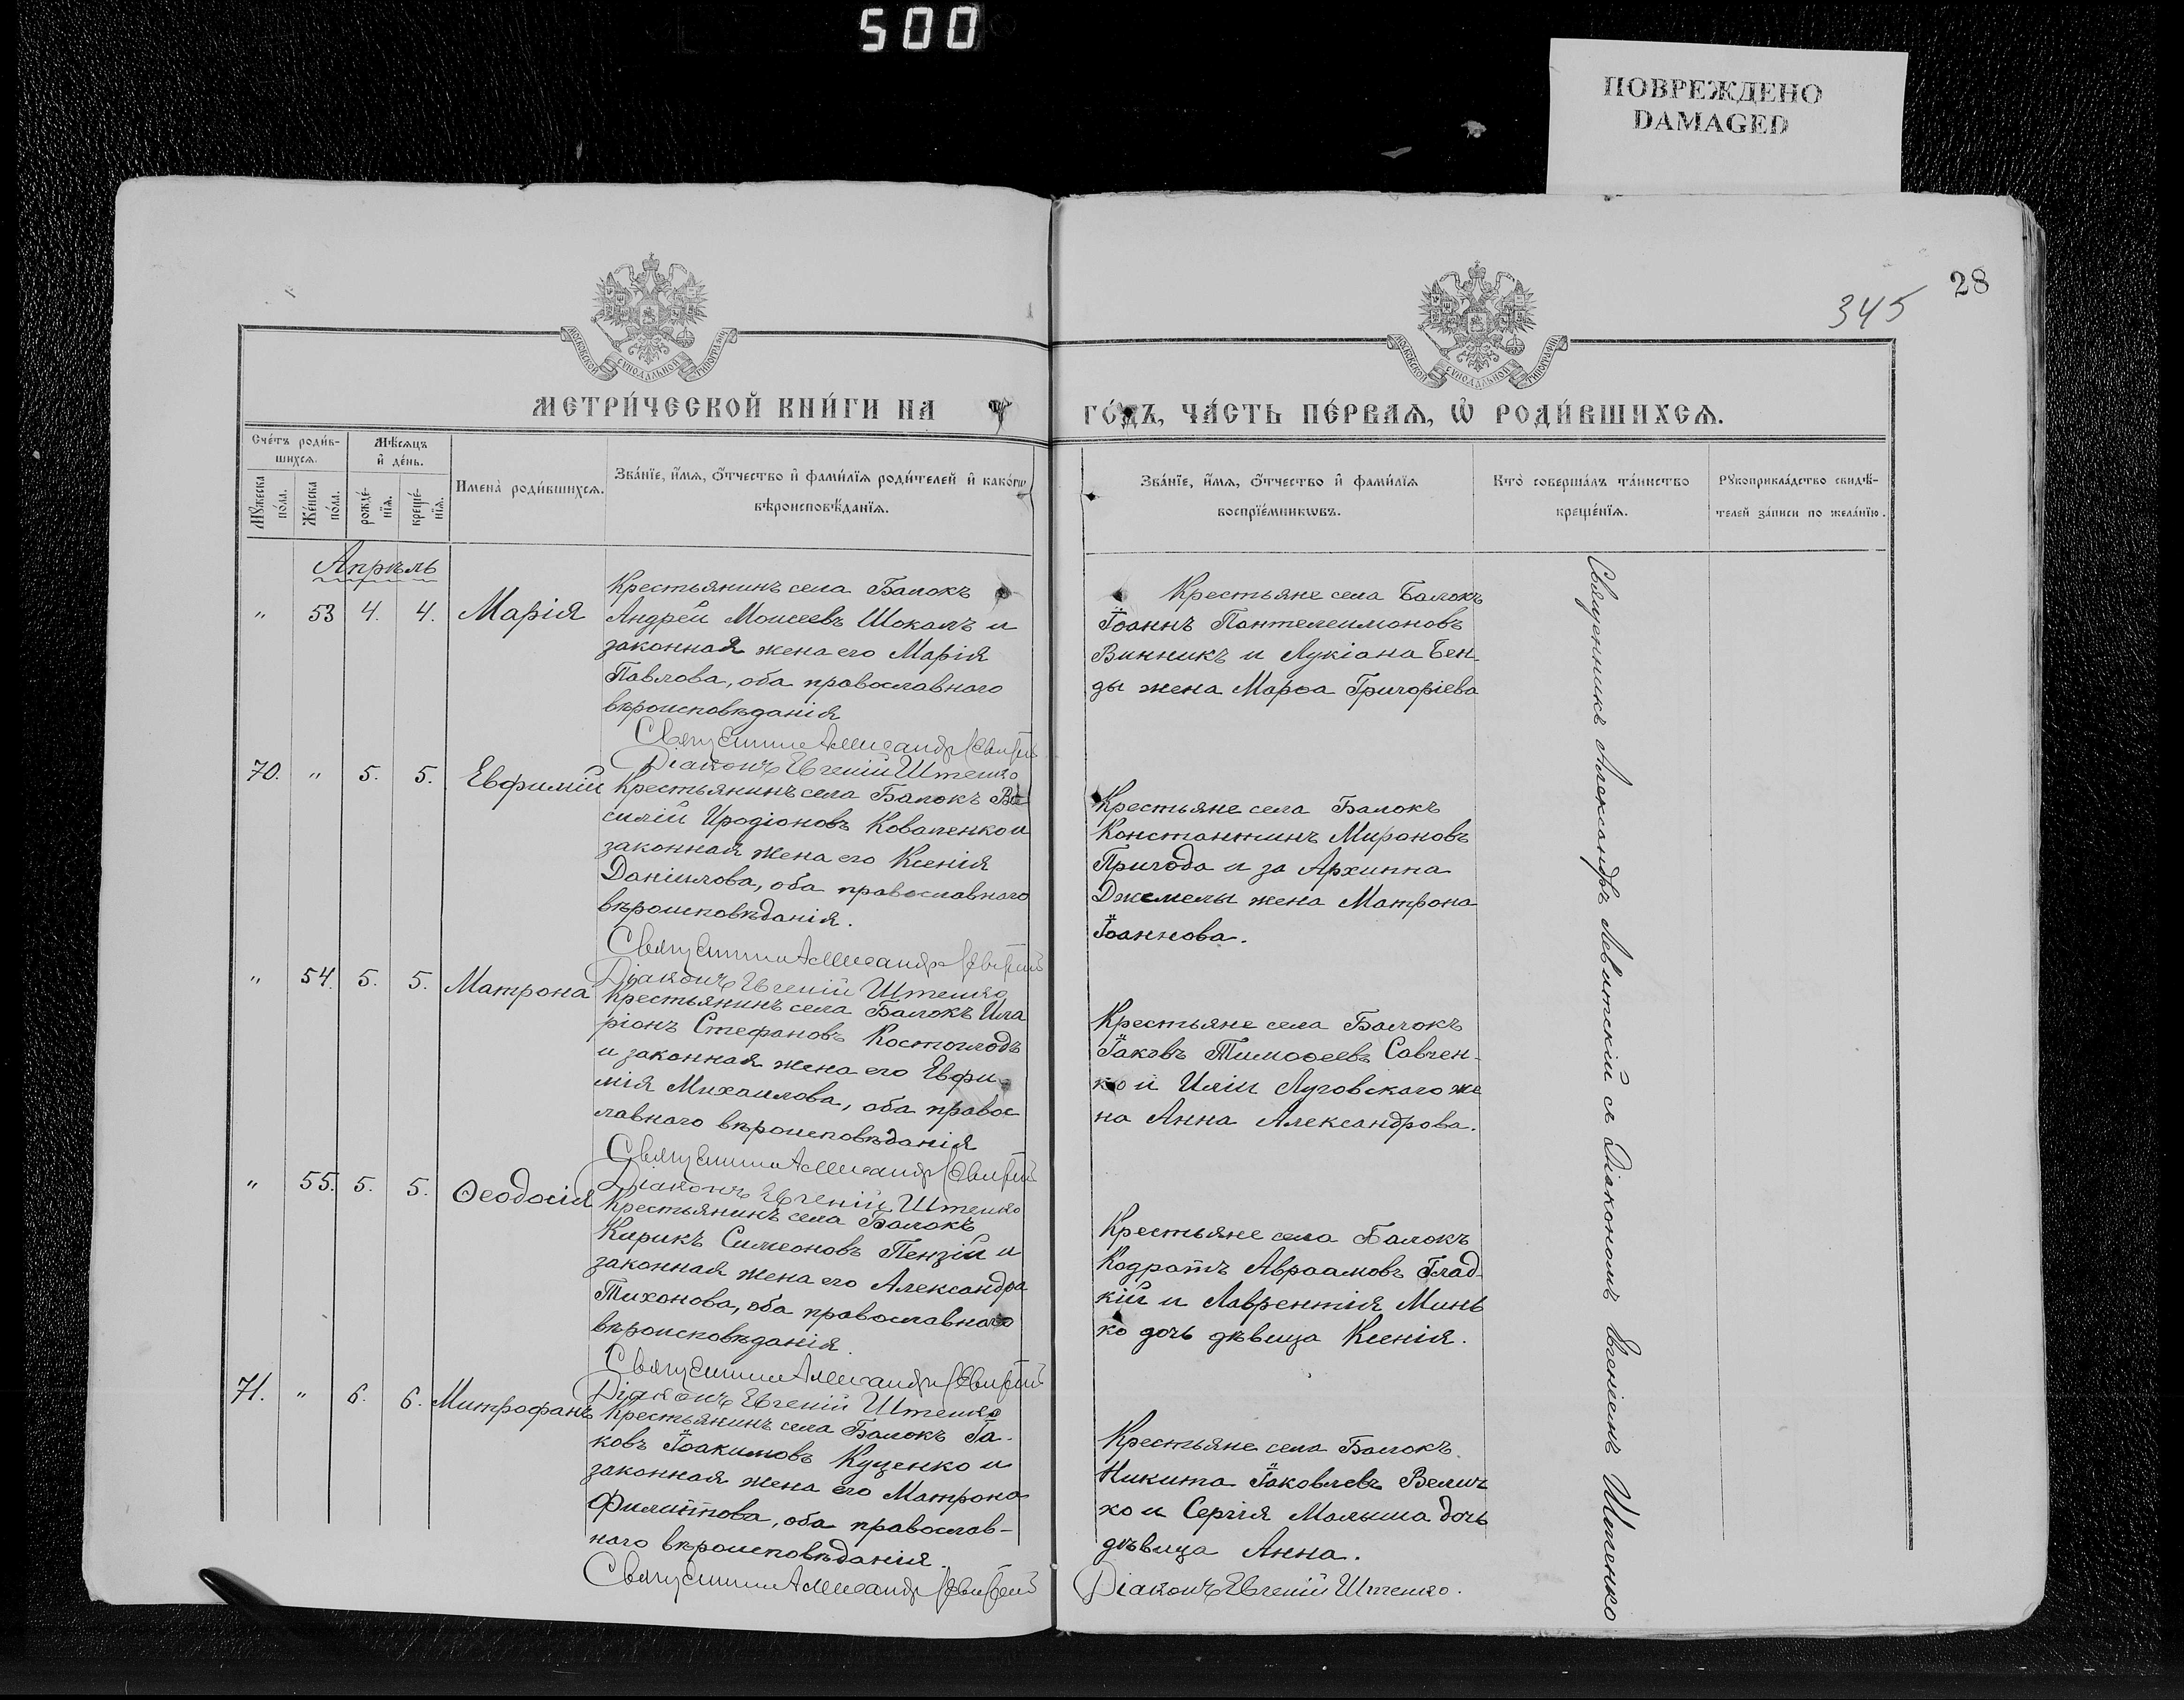 500
ПОВРЕЖДЕНО
DAMAGED
28
345
МОСКОВСКОЙ СѴНОДАЛЬНОЙ ТИПОГРАФІИ
МОСКОВСКОЙ СѴНОДАЛЬНОЙ ТИПОГРАФІИ
МЕТРИ́ЧЕСКОЙ КНИ́ГИ НА
ГО́ДЪ, ЧА́СТЬ ПЕ́РВАЯ, Ѡ РОДИ́ВШИХСЯ.
Сче́тъ роди́в-
шихся.
Мѣ́сяцъ
и҆ де́нь.
Мꙋ́жеска
по́ла.
Же́нска
по́ла.
рожде́-
нїя.
креще́-
нїя.
Имена̀ роди́вшихся.
Зва́нїе, и҆́мя, ѻ҆́тчество и҆ фами́лїя роди́телей и҆ како́гѡ
вѣроисповѣ́данїя.
Зва́нїе, и҆́мя, ѻ҆́тчество и҆ фами́лїя
воспрїе́мникѡвъ.
Кто̀ соверша́лъ та́инство
креще́нїя.
Рꙋкоприкла́дство свидѣ́-
телей за́писи по жела́нїю.
Апрѣль
" 53 4. 4. Марія
Крестьянинъ села Балокъ
Андрей Моисеевъ Шокалъ и
законная жена его Марія
Павлова, оба православнаго
вѣроисповѣданія
Священникъ Александръ Левитскій
Діаконъ Евгеній Штепенко
Крестьяне села Балокъ
Іоаннъ Пантелеимоновъ
Винникъ и Лукіана Бен-
ды жена Марѳа Григоріева
70. " 5. 5. Евфимій
Крестьянинъ села Балокъ Ва
силій Иродіоновъ Коваленко и
законная жена его Ксенія
Даніилова, оба православнаго
вѣроисповѣданія.
Священникъ Александръ Левитскій
Діаконъ Евгеній Штепенко
Крестьяне села Балокъ
Константинъ Мироновъ
Пригода и за Архиппа
Джемелы жена Матрона
Іоаннова.
" 54. 5. 5. Матрона
Крестьянинъ села Балокъ Ила
ріонъ Стефановъ Костоглодъ
и законная жена его Евфи-
мія Михаилова, оба правос
лавнаго вѣроисповѣданія
Священникъ Александръ Левитскій
Діаконъ Евгеній Штепенко
Крестьяне села Балокъ
Іаковъ Тимоѳеевъ Савчен-
ко и Иліи Луговскаго же
на Анна Александрова.
" 55. 5. 5. Ѳеодосія
Крестьянинъ села Балокъ
Кирикъ Симеоновъ Пензій и
законная жена его Александра
Тихонова, оба православнаго
вѣроисповѣданія.
Священникъ Александръ Левитскій
Діаконъ Евгеній Штепенко
Крестьяне села Балокъ
Кодратъ Авраамовъ Глад-
кій и Лаврентія Минь
ко дочь дѣвица Ксенія.
71. " 6. 6. Митрофанъ
Крестьянинъ села Балокъ Іа-
ковъ Іоакимовъ Куценко и
законная жена его Матрона
Филиппова, оба православ-
наго вѣроисповѣданія.
Священникъ Александръ Левитскій
Крестьяне села Балокъ
Никита Іаковлевъ Велич
ко и Сергія Малыша дочь
дѣвица Анна.
Діаконъ Евгеній Штепенко.
Священникъ Александръ Левитскій съ Діакономъ Евгеніемъ Штепенко